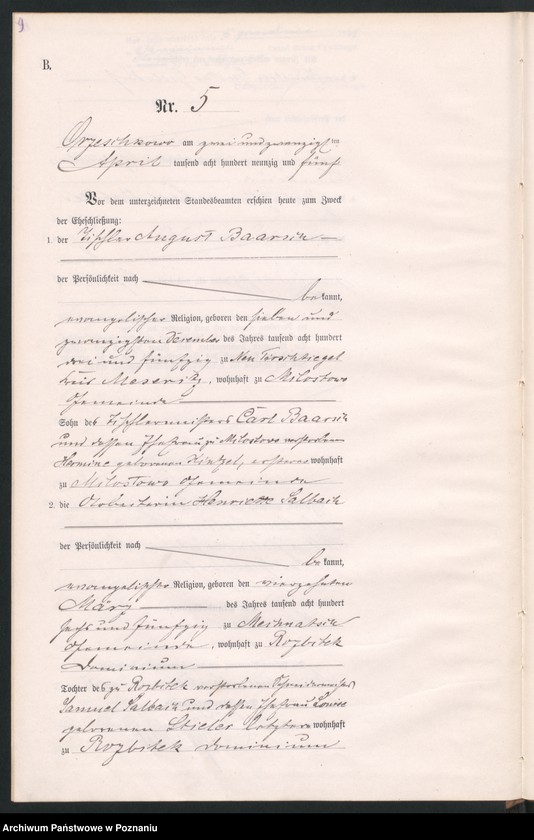 9
B.
Nr. 5
Orzeschkowo am zwei und zwanzigsten
April tausend acht hundert neunzig und fünf
Vor dem unterzeichneten Standesbeamten erschien heute zum Zweck
der Eheschließung:
1. der Tischler August Baarsch
der Persönlichkeit nach
bekannt,
evangelischer Religion, geboren den sieben und
zwanzigsten Dezember des Jahres tausend acht hundert
drei und fünfzig zu Neu Tirschtiegel
Kreis Meseritz, wohnhaft zu Milostowo
Gemeinde
Sohn des Tischlermeisters Carl Baarsch
und dessen Ehefrau zu Milostowo verstorbenen
Hermine geborenen, ersterer wohnhaft
zu Milostowo Gemeinde
2. die Arbeiterin Henriette Salbach
der Persönlichkeit nach
bekannt,
evangelischer Religion, geboren den vierzehnten
März des Jahres tausend acht hundert
sechs und fünfzig zu
Gemeinde, wohnhaft zu Rozbitek
Dominium
Tochter des zu Rozbitek verstorbenen Schneidermeisters
Samuel Salbach und dessen Ehefrau Louise
geborenen Stieler letztere wohnhaft
zu Rozbitek Dominium
Archiwum Państwowe w Poznaniu